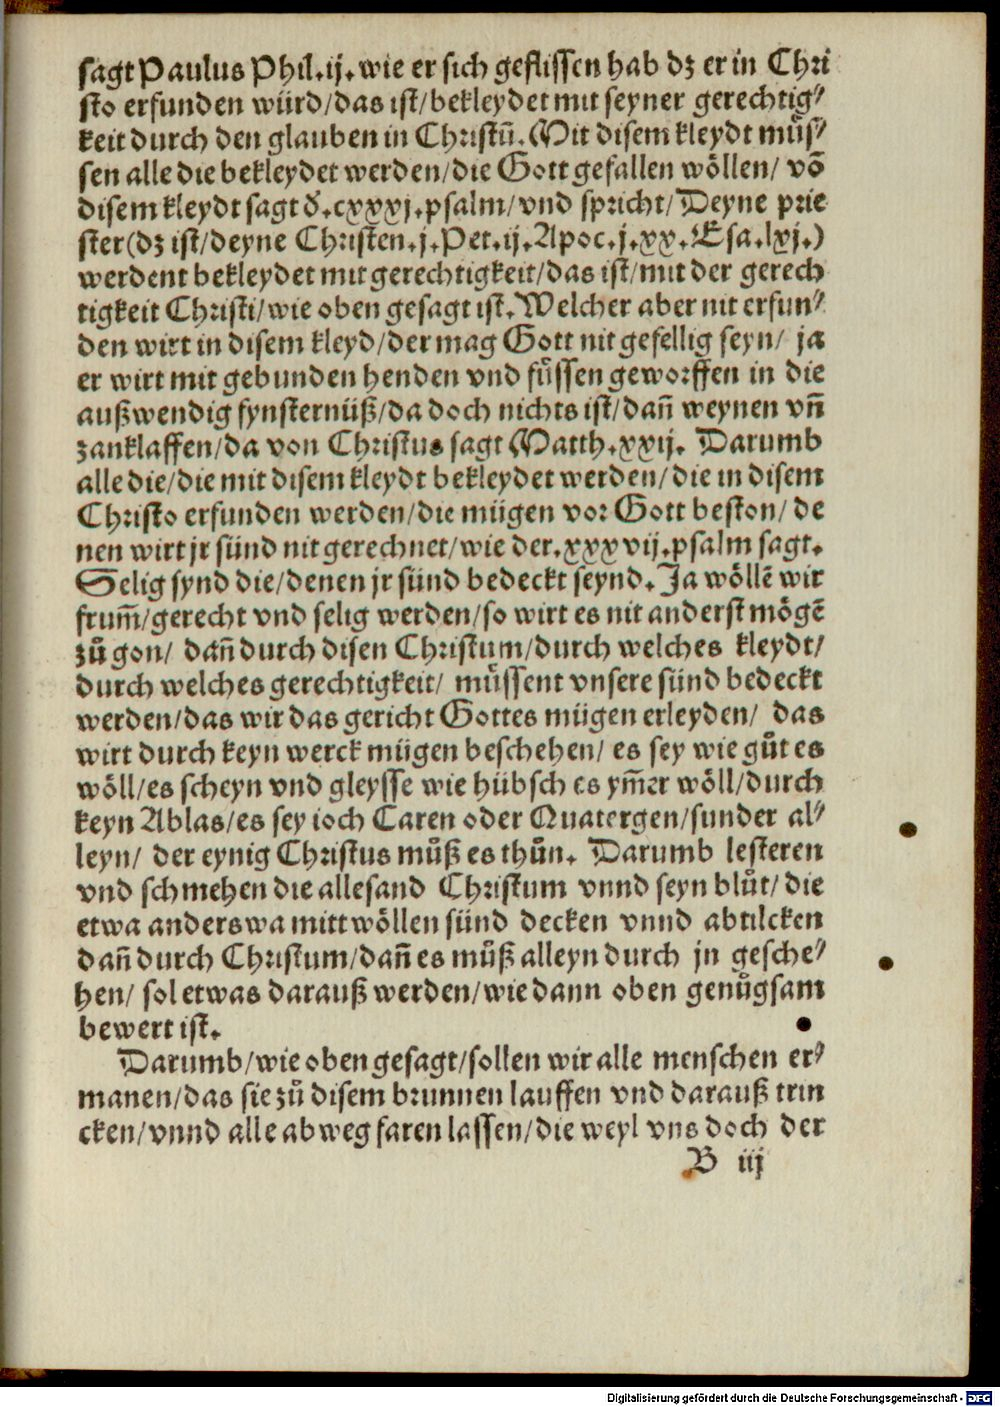 sagt Paulus Phil.ij.wie er sich geflissen hab dz er in Chri
sto erfunden würd/das ist/bekleydet mit seyner gerechtig⸗
keit durch den glauben in Christū. Mit disem kleydt müs⸗
sen alle die bekleydet werden/die Gott gefallen wöllen/ vō
disem kleydt sagt d'.cxxxj.psalm/vnd spricht/Deyne prie
ster(dz ist/deyne Christen.j.Pet.ij.Apoc.j.xx.Esa.lxj.)
werdent bekleydet mit gerechtigkeit/das ist/mit der gerech
tigkeit Christi/wie oben gesagt ist.Welcher aber nit erfun⸗
den wirt in disem kleyd/der mag Gott nit gefellig seyn/ ja
er wirt mit gebunden henden vnd füssen geworffen in die
außwendig fynsternüß/da doch nichts ist/dañ weynen vñ
zanklaffen/da von Christus sagt Matth.xxij. Darumb
alle die/die mit disem kleydt bekleydet werden/die in disem
Christo erfunden werden/die mügen vor Gott beston/ de
nen wirt jr sünd nit gerechnet/wie der.xxxvij.psalm sagt.
Selig synd die/denen jr sünd bedeckt seynd.Ja wöllē wir
frum̄/gerecht vnd selig werden/so wirt es nit anderst mögē
zů gon/ dañ durch disen Christum/durch welches kleydt/
durch welches gerechtigkeit/ müssent vnsere sünd bedeckt
werden/das wir das gericht Gottes mügen erleyden/ das
wirt durch keyn werck mügen beschehen/ es sey wie gůt es
wöll/es scheyn vnd gleysse wie hübsch es ym̄er wöll/durch
keyn Ablas/es sey ioch Caren oder Quatergen/sunder al⸗
leyn/ der eynig Christus můß es thůn. Darumb lesteren
vnd schmehen die allesand Christum vnnd seyn blůt/die
etwa anderswa mitt wöllen sünd decken vnnd abtilcken
dañ durch Christum/dañ es můß alleyn durch jn gesche⸗
hen/ sol etwas darauß werden/wie dann oben genůgsam
bewert ist.
Darumb/wie oben gesagt/sollen wir alle menschen er⸗
manen/das sie zů disem brunnen lauffen vnd darauß trin
cken/vnnd alle abweg faren lassen/die weyl vns doch der
B iij
Digitalisierung gefördert durch die Deutsche Forschungsgemeinschaft - DFG